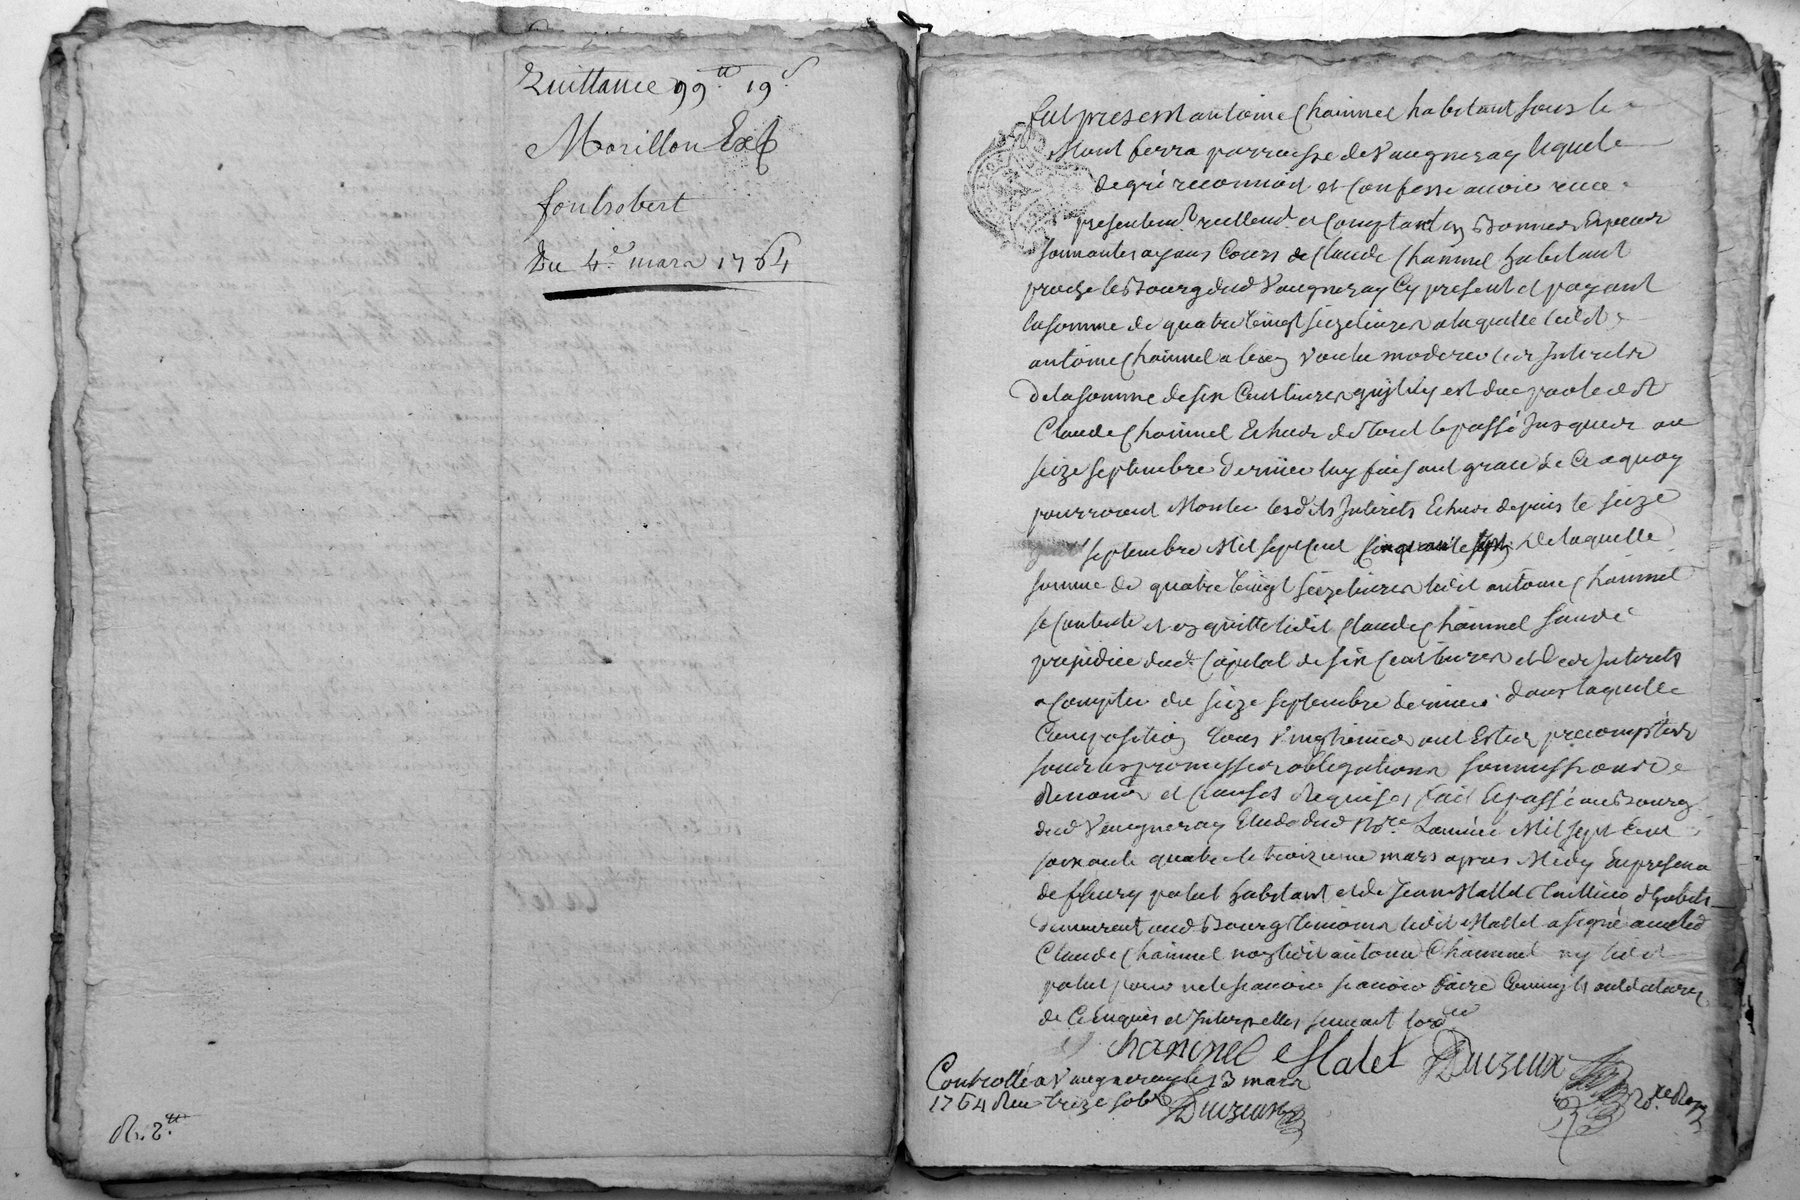 Quittance 99.tt 19.s
Morillon Ex
fontrobert
Du 4.e mars 1764
R. 2.tt
fut present antoine Chainnel habitant sous le
Mont ferra parroisse de Vaugneray lequel
de gré reconnoit et Confesse avoir receu
presentemt. reellemt. et Comptant en Bonnes Especes
sonnantes ayans Cours de Claude Chainnel habitant
proche le Bourg dud Vaugneray Cy present et payant
la somme de quatre vingt seize livres a laquelle ledit
antoine Chainnel a bien voulu moderer les Interets
de la somme de six Cent livres qui luy est due par ledit
Claude Chainnel Echus de tout le passé Jusques au
seize septembre dernier luy faisant grace de Ce a quoy
pourroient Monter lesdits Interets Echus depuis le seize
septembre Mil sept Cent Cinquante sept De laquelle
somme de quatre vingt seize livres ledit antoine Chainnel
se Contente et en quitte ledit Claude Chainnel sans
prejudice dud. Capital de six Cent livres et des Interets
a Compter du seize septembre dernier dans laquelle
Composition tous vingtiemes ont Esté precomptés
sous les promesses obligations soumissions
Renonn et Clauses Requises fait et passé au Bourg
dud Vaugneray Etude dud Nore L'année Mil sept Cent
soixante quatre le troizieme mars apres Midy En presence
de fleury patet habitant et de Jean Mallet habits
demeurant aud Bourg temoins ledit Mallet a signé avec led
Claude Chainnel non ledit antoine Chainnel ny ledit
patet pour ne le scavoir faire Comme ils ont declaré
de Ce enquis et Interpelles suivant lordce
Chaninel Malet Duzeux
Controllé a Vaugneray le 3 mars
1764 Reçu treize sols Duzeux